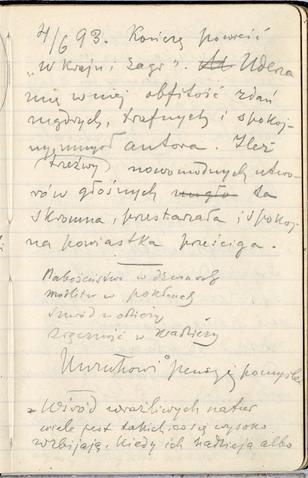 4/6 93. Kończę powieść
„W kraju i . Uderza
mię w niej obfitość zdań
mądrych, trafnych i spokoj-
ny umysł autora. Ileż
(trzeźwy) nowomodnych utwo-
rów głośnych ta
skromna, przestarzała i spokoj-
na powiastka prześciga.
Nabożeństwo w
modlitw w pokłonach
w odzieży
zręczność w kradzieży
" Wśród wrażliwych natur
wiele jest takich, co się wysoko
wzbijają, kiedy ich nadzieja albo